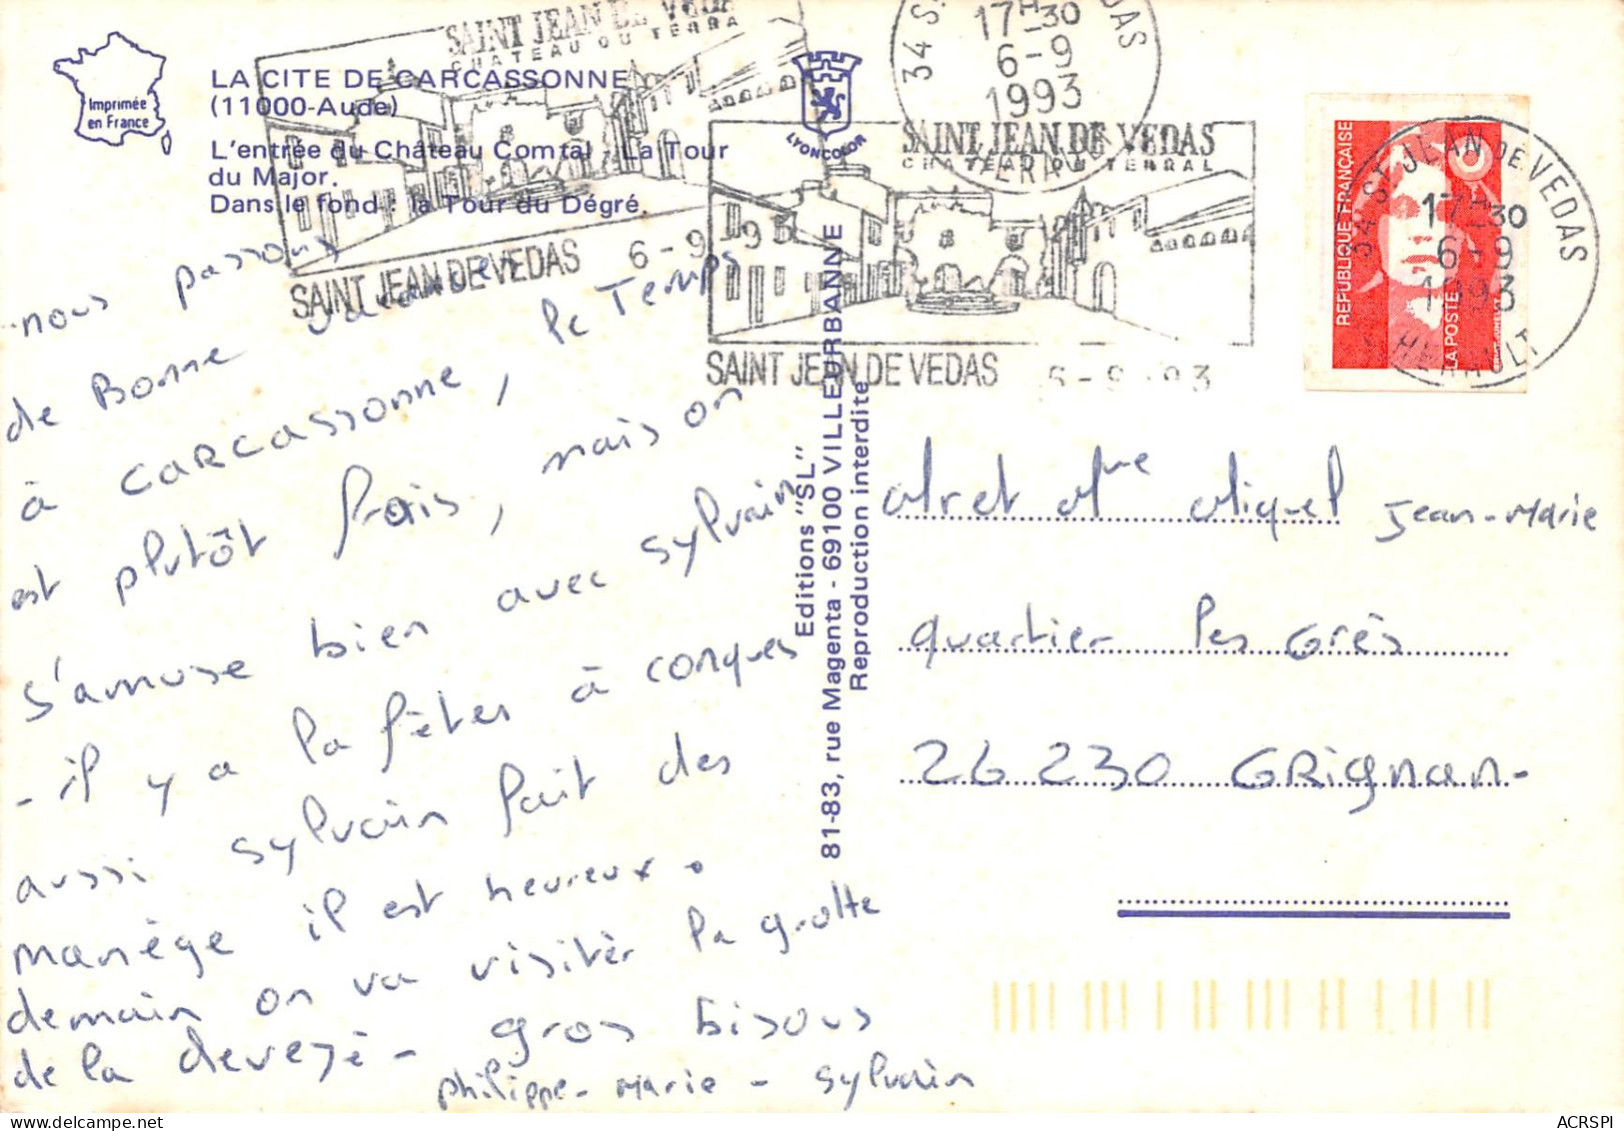 Imprimée
en France
LA CITE DE CARCASSONNE
(11000-Aude)
L'entrée du Château Comtal. La Tour
du Major.
Dans le fond : la Tour du Dégré.
SAINT JEAN DE VEDAS
CHATEAU DU TERRAL
SAINT JEAN DE VEDAS 6-9-93
LYONCOLOR
17H30
6-9
1993
SAINT JEAN DE VEDAS
CHATEAU DU TERRAL
SAINT JEAN DE VEDAS 6-9-93
REPUBLIQUE FRANÇAISE
LA POSTE
34 ST JEAN DE VEDAS
17H30
6-9
1993
HERAULT
nous passons
de Bonne vacances
à Carcassonne, le Temps
est plutôt frais, mais on
s'amuse bien avec sylvain
- il y a la fêtes à conques
aussi sylvain fait des
manège il est heureux.
demain on va visitèr la grotte
de la devezé - gros bisous
philippe - Marie - sylvain
Editions "SL"
81-83, rue Magenta - 69100 VILLEURBANNE
Reproduction interdite
Mr et Mme Miquel Jean-Marie
quartier les Grès
26 230 Grignan-
ACRSPI